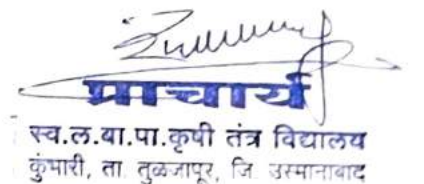 प्राचार्य
स्व.ल.बा.पा.कृषी तंत्र विद्यालय
कुंभारी, ता. तुळजापूर, जि. उस्मानाबाद